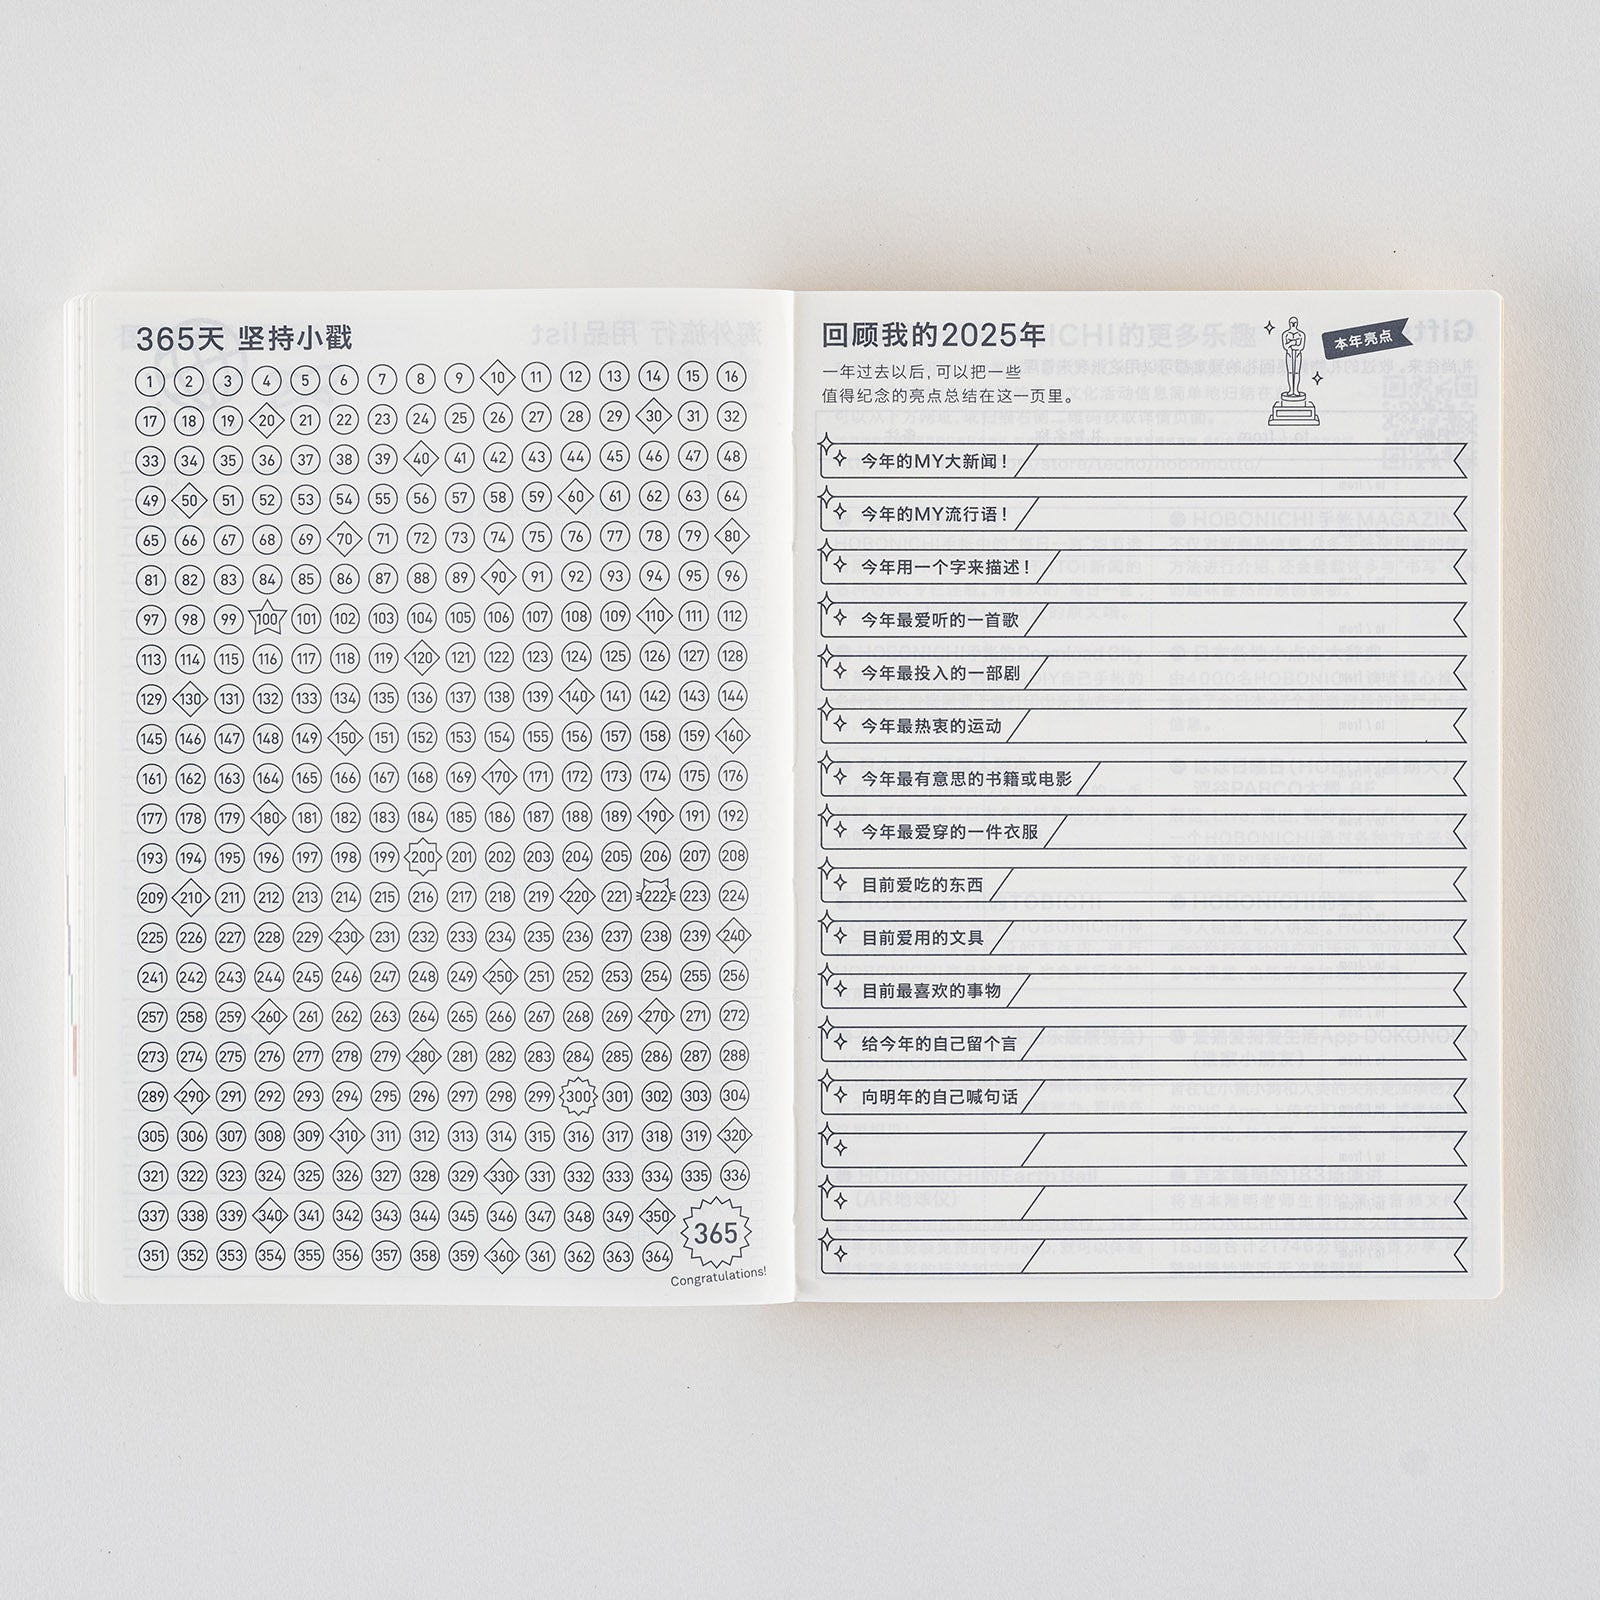 365天 坚持小戳
1 2 3 4 5 6 7 8 9 10 11 12 13 14 15 16
17 18 19 20 21 22 23 24 25 26 27 28 29 30 31 32
33 34 35 36 37 38 39 40 41 42 43 44 45 46 47 48
49 50 51 52 53 54 55 56 57 58 59 60 61 62 63 64
65 66 67 68 69 70 71 72 73 74 75 76 77 78 79 80
81 82 83 84 85 86 87 88 89 90 91 92 93 94 95 96
97 98 99 100 101 102 103 104 105 106 107 108 109 110 111 112
113 114 115 116 117 118 119 120 121 122 123 124 125 126 127 128
129 130 131 132 133 134 135 136 137 138 139 140 141 142 143 144
145 146 147 148 149 150 151 152 153 154 155 156 157 158 159 160
161 162 163 164 165 166 167 168 169 170 171 172 173 174 175 176
177 178 179 180 181 182 183 184 185 186 187 188 189 190 191 192
193 194 195 196 197 198 199 200 201 202 203 204 205 206 207 208
209 210 211 212 213 214 215 216 217 218 219 220 221 222 223 224
225 226 227 228 229 230 231 232 233 234 235 236 237 238 239 240
241 242 243 244 245 246 247 248 249 250 251 252 253 254 255 256
257 258 259 260 261 262 263 264 265 266 267 268 269 270 271 272
273 274 275 276 277 278 279 280 281 282 283 284 285 286 287 288
289 290 291 292 293 294 295 296 297 298 299 300 301 302 303 304
305 306 307 308 309 310 311 312 313 314 315 316 317 318 319 320
321 322 323 324 325 326 327 328 329 330 331 332 333 334 335 336
337 338 339 340 341 342 343 344 345 346 347 348 349 350
351 352 353 354 355 356 357 358 359 360 361 362 363 364 365
Congratulations!
回顾我的2025年
本年亮点
一年过去以后，可以把一些
值得纪念的亮点总结在这一页里。
今年的MY大新闻！
今年的MY流行语！
今年用一个字来描述！
今年最爱听的一首歌
今年最投入的一部剧
今年最热衷的运动
今年最有意思的书籍或电影
今年最爱穿的一件衣服
目前爱吃的东西
目前爱用的文具
目前最喜欢的事物
给今年的自己留个言
向明年的自己喊句话